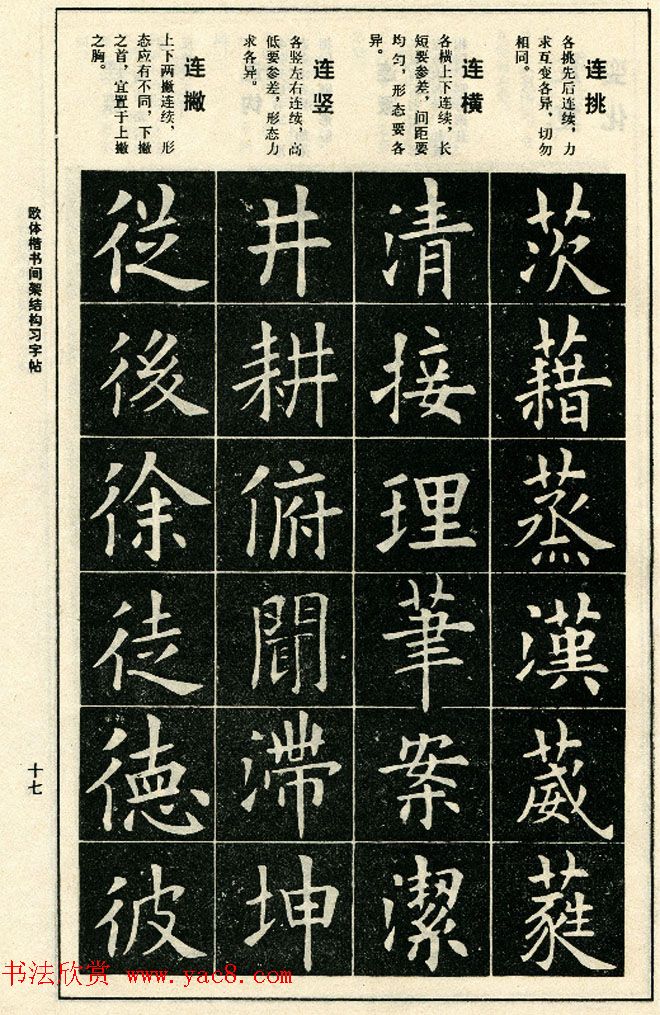 连挑
各挑先后连续，力
求互变各异，切勿
相同。
茨
藉
蒸
漢
葳
蕤
连横
各横上下连续，长
短要参差，间距要
均匀，形态要各
异。
清
接
理
筆
案
潔
连竖
各竖左右连续，高
低要参差，形态力
求各异。
井
耕
俯
聞
滯
坤
连撇
上下两撇连续，形
态应有不同，下撇
之首，宜置于上撇
之胸。
從
後
徐
徒
德
彼
欧体楷书间架结构习字帖
十七
书法欣赏 www.yac8.com